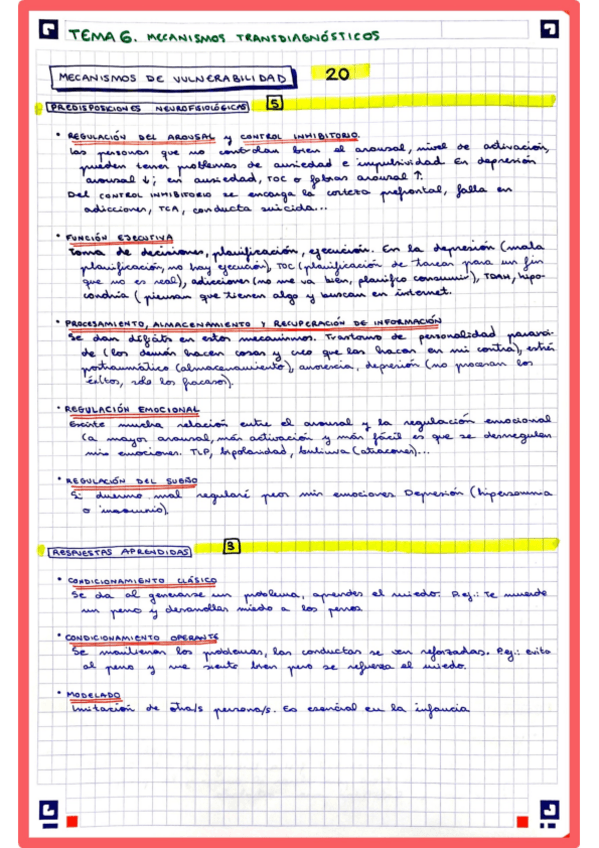 TEMA 6. MECANISMOS TRANSDIAGNÓSTICOS
MECANISMOS DE VULNERABILIDAD 20
PREDISPOSICIONES NEUROFISIOLÓGICAS 5
• REGULACIÓN DEL AROUSAL y CONTROL INHIBITORIO.
Las personas que no controlan bien el arousal, nivel de activación,
pueden tener problemas de ansiedad e impulsividad. En depresión
arousal ↓; en ansiedad, TOC o fobias arousal ↑.
Del CONTROL INHIBITORIO se encarga la corteza prefrontal, falla en
adicciones, TCA, conducta suicida...
• FUNCIÓN EJECUTIVA
Toma de decisiones, planificación, ejecución. En la depresión (mala
planificación, no hay ejecución), TOC (planificación de tareas para un fin
que no es real), adicciones (no me va bien, planifico consumir), TDAH, hipo-
condría (piensan que tienen algo y buscan en internet.
• PROCESAMIENTO, ALMACENAMIENTO Y RECUPERACIÓN DE INFORMACIÓN
Se dan déficits en estos mecanismos. Trastorno de personalidad paranoi-
de (los demás hacen cosas y creo que las hacen en mi contra), estrés
postraumático (almacenamiento), anorexia, depresión (no procesan los
éxitos, solo los fracasos).
• REGULACIÓN EMOCIONAL
Existe mucha relación entre el arousal y la regulación emocional
(a mayor arousal, más activación y más fácil es que se desregulen
mis emociones. TLP, bipolaridad, bulimia (atracones)...
• REGULACIÓN DEL SUEÑO
Si duermo mal regularé peor mis emociones. Depresión (hipersomnia
o insomnio).
RESPUESTAS APRENDIDAS 3
• CONDICIONAMIENTO CLÁSICO
Se da al generarse un problema, aprendes el miedo. P.ej.: Te muerde
un perro y desarrollas miedo a los perros
• CONDICIONAMIENTO OPERANTE
Se mantienen los problemas, las conductas se ven reforzadas. P.ej.: evito
al perro y me siento bien pero se refuerza el miedo.
• MODELADO
Imitación de otra/s persona/s. Es esencial en la infancia